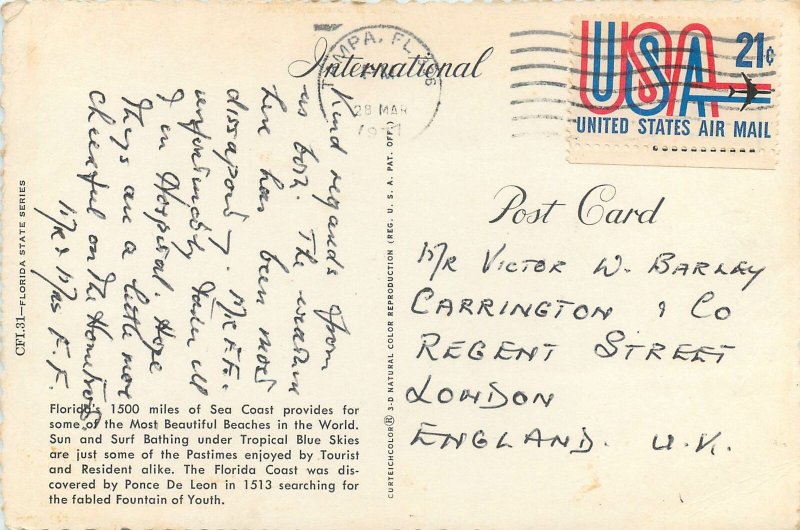 International
TAMPA, FL. 336
28 MAR
1971
USA
21¢
UNITED STATES AIR MAIL
Post Card
Kind regards from
us both. The weather
here has been most
dissapointg. Mr F.F.
unfortunately taken ill
& in Hospital. Hope
Things are a little more
cheerful on the Homefront.
Mr & Mrs F. F.
MR VICTOR W. BARLEY
CARRINGTON & CO
REGENT STREET
LONDON
ENGLAND. U.K.
CFI.31—FLORIDA STATE SERIES
CURTEICHCOLOR® 3-D NATURAL COLOR REPRODUCTION (REG. U. S. A. PAT. OFF.)
Florida's 1500 miles of Sea Coast provides for
some of the Most Beautiful Beaches in the World.
Sun and Surf Bathing under Tropical Blue Skies
are just some of the Pastimes enjoyed by Tourist
and Resident alike. The Florida Coast was dis-
covered by Ponce De Leon in 1513 searching for
the fabled Fountain of Youth.